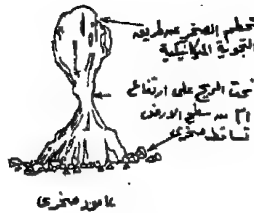 تحطم الصخر عن طريق
التجوية الميكانيكية
نحت الريح على ارتفاع
١م من سطح الأرض
تساقط صخرى
عامود صخرى